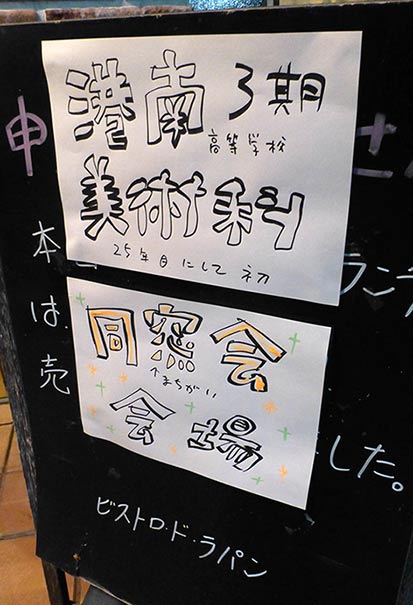 港南 3期
高等学校
美術科
25年目にして初
同窓会
↑まちがい
会場
申
本 ランチ
は
売 した。
ビストロ・ド・ラパン